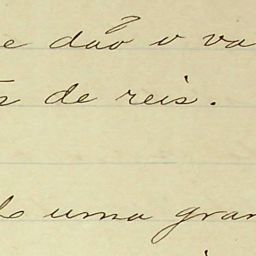 e dão o va
s de reis.
do uma gran